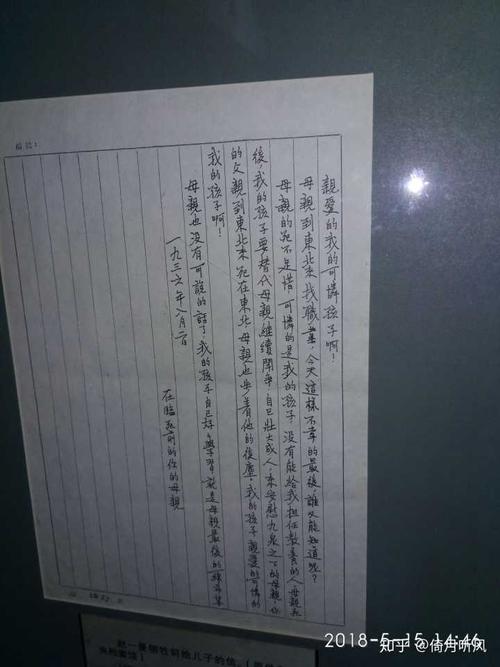 稿纸：
親愛的我的可憐孩子啊！
母親到東北来找職業，今天這樣不幸的最後，誰又能知道呢？
母親的死不足惜，可憐的是我的孩子，没有能給我担任教養的人。母親死
後，我的孩子要替代母親継續鬪争，自己壮大成人，来安慰九泉之下的母親，你
的父親到東北来死在東北，母親也步着他的後塵。我的孩子，親愛的可憐的
我的孩子啊！
母親也没有可説的話了，我的孩子自己好々學習，就是母親最後的
一九三六年八月二日
在臨死前的你的母親
赵一曼牺牲前给儿子的信。
2018-5-15 14:46
知乎 @倚月听风